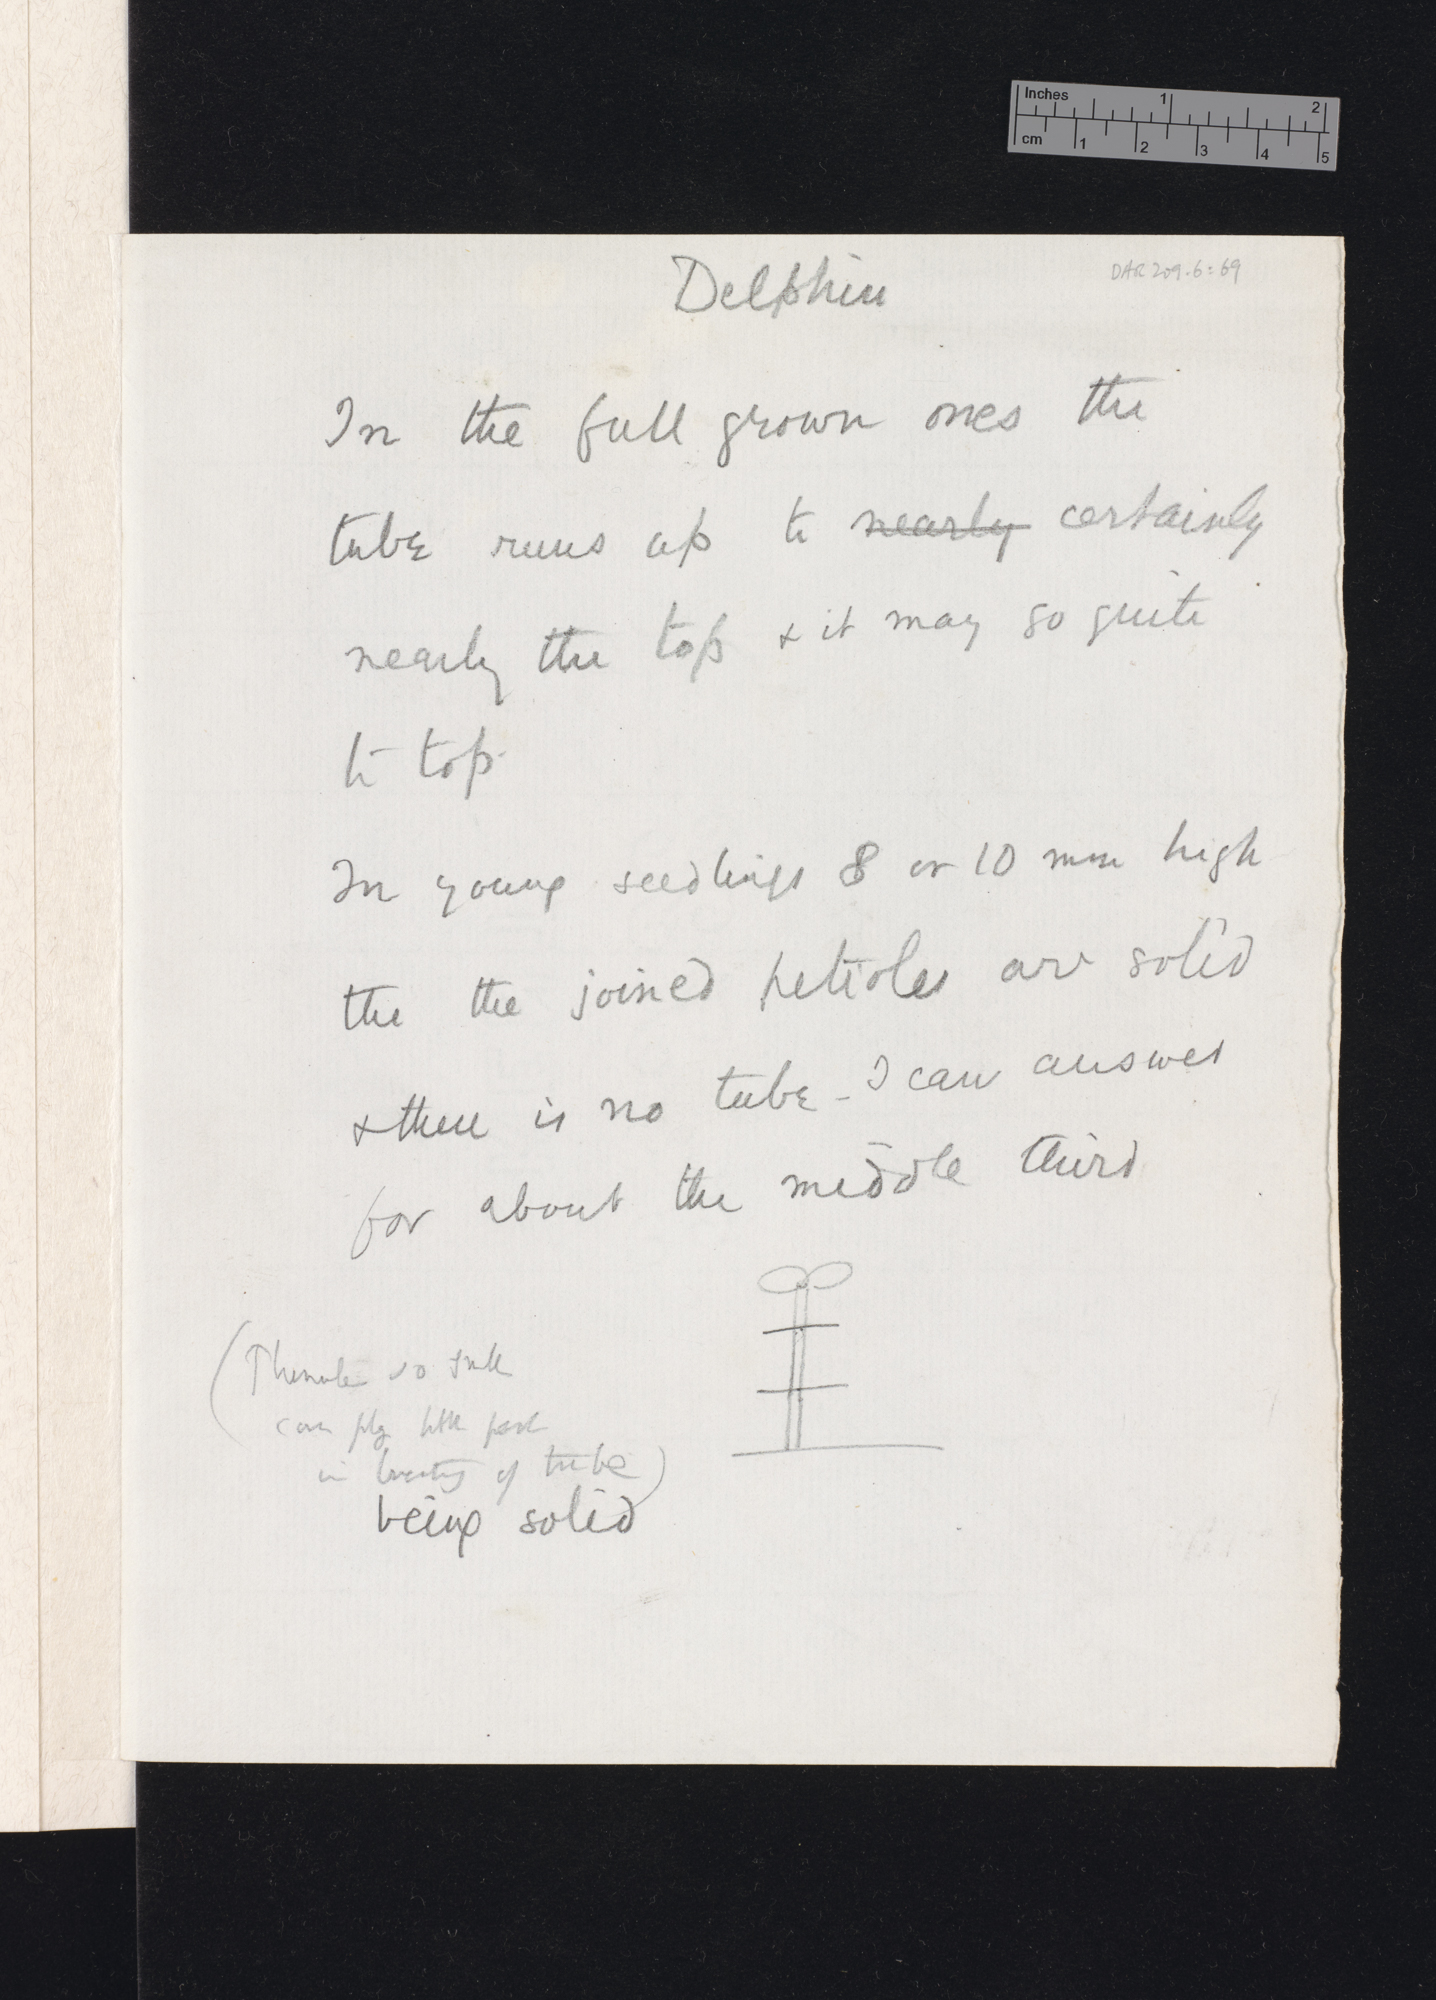 Inches 1 2
cm 1 2 3 4 5
DAR 209.6:69
Delphin
In the full grown ones the
tube runs up to nearly certainly
nearly the top & it may go quite
to top.
In young seedlings 8 or 10 mm high
the the joined petioles are solid
& there is no tube - I can answer
for about the middle third
(Therefore so
can play little part
in breaking of tube)
being solid